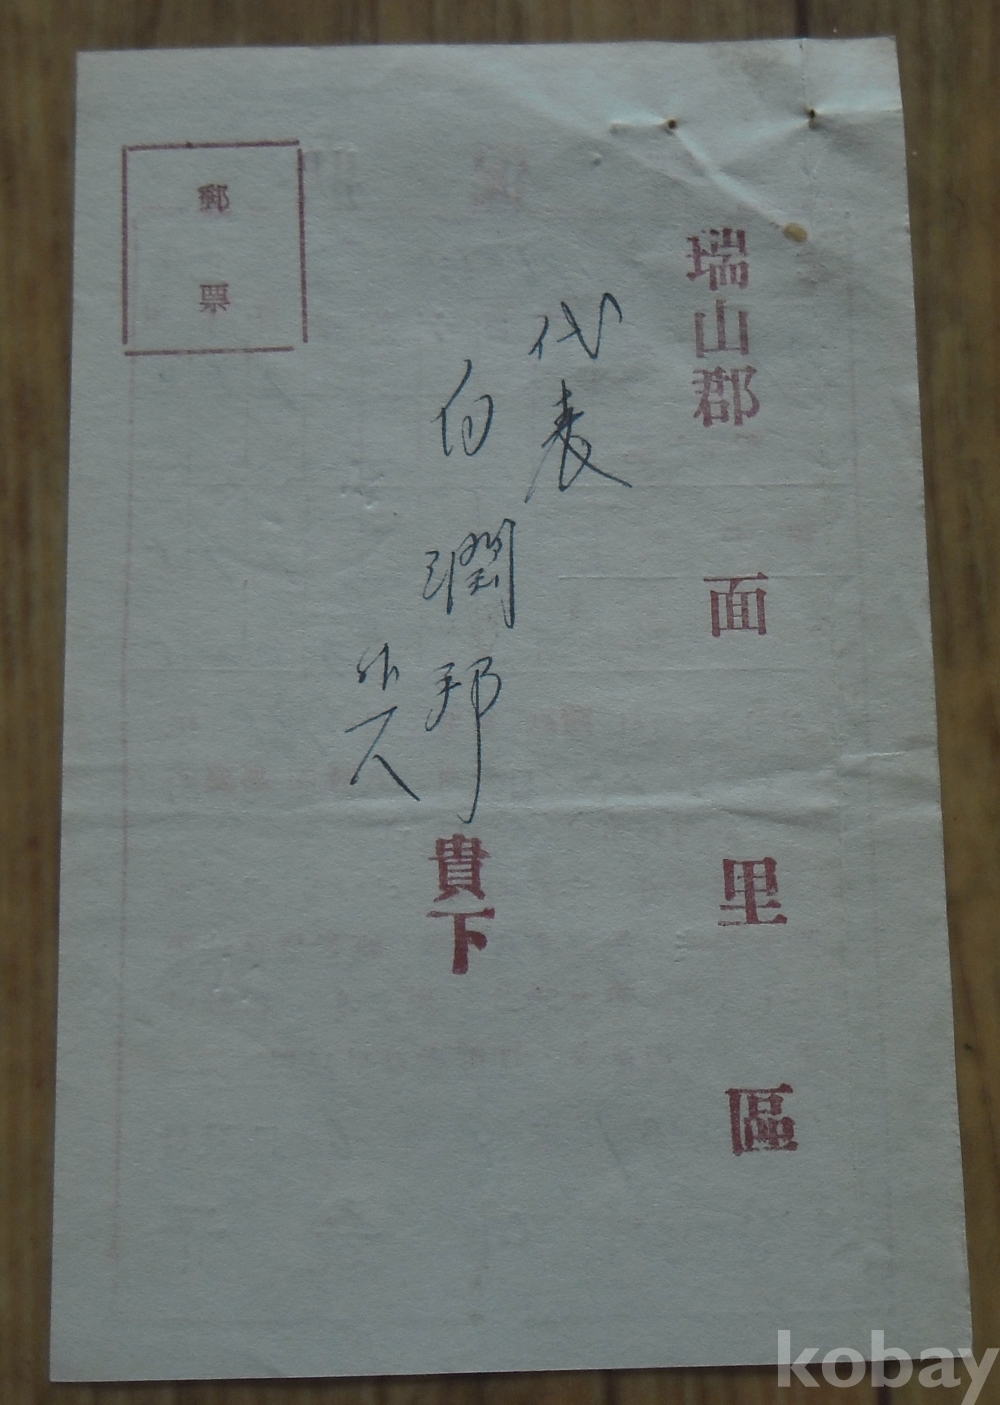 瑞山郡 面 里 區
代表
白潤邦 貴下
外一人
郵票
kobay